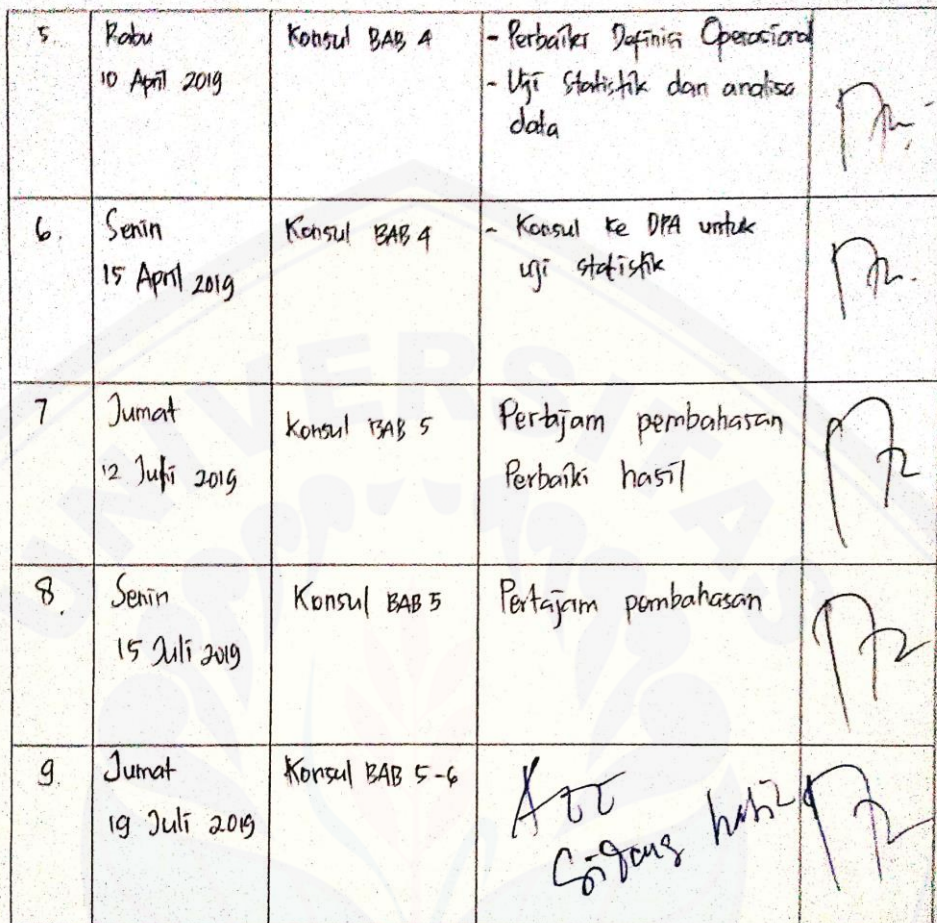 5. Rabu
10 April 2019
Konsul BAB 4
- Perbaiki Definisi Operasional
- Uji Statistik dan analisa
data
6. Senin
15 April 2019
Konsul BAB 4
- Konsul ke DPA untuk
uji statistik
7 Jumat
12 Juli 2019
Konsul BAB 5
Pertajam pembahasan
Perbaiki hasil
8. Senin
15 Juli 2019
Konsul BAB 5
Pertajam pembahasan
9. Jumat
19 Juli 2019
Konsul BAB 5-6
Acc
Sidang hasil
UNIVERSITAS